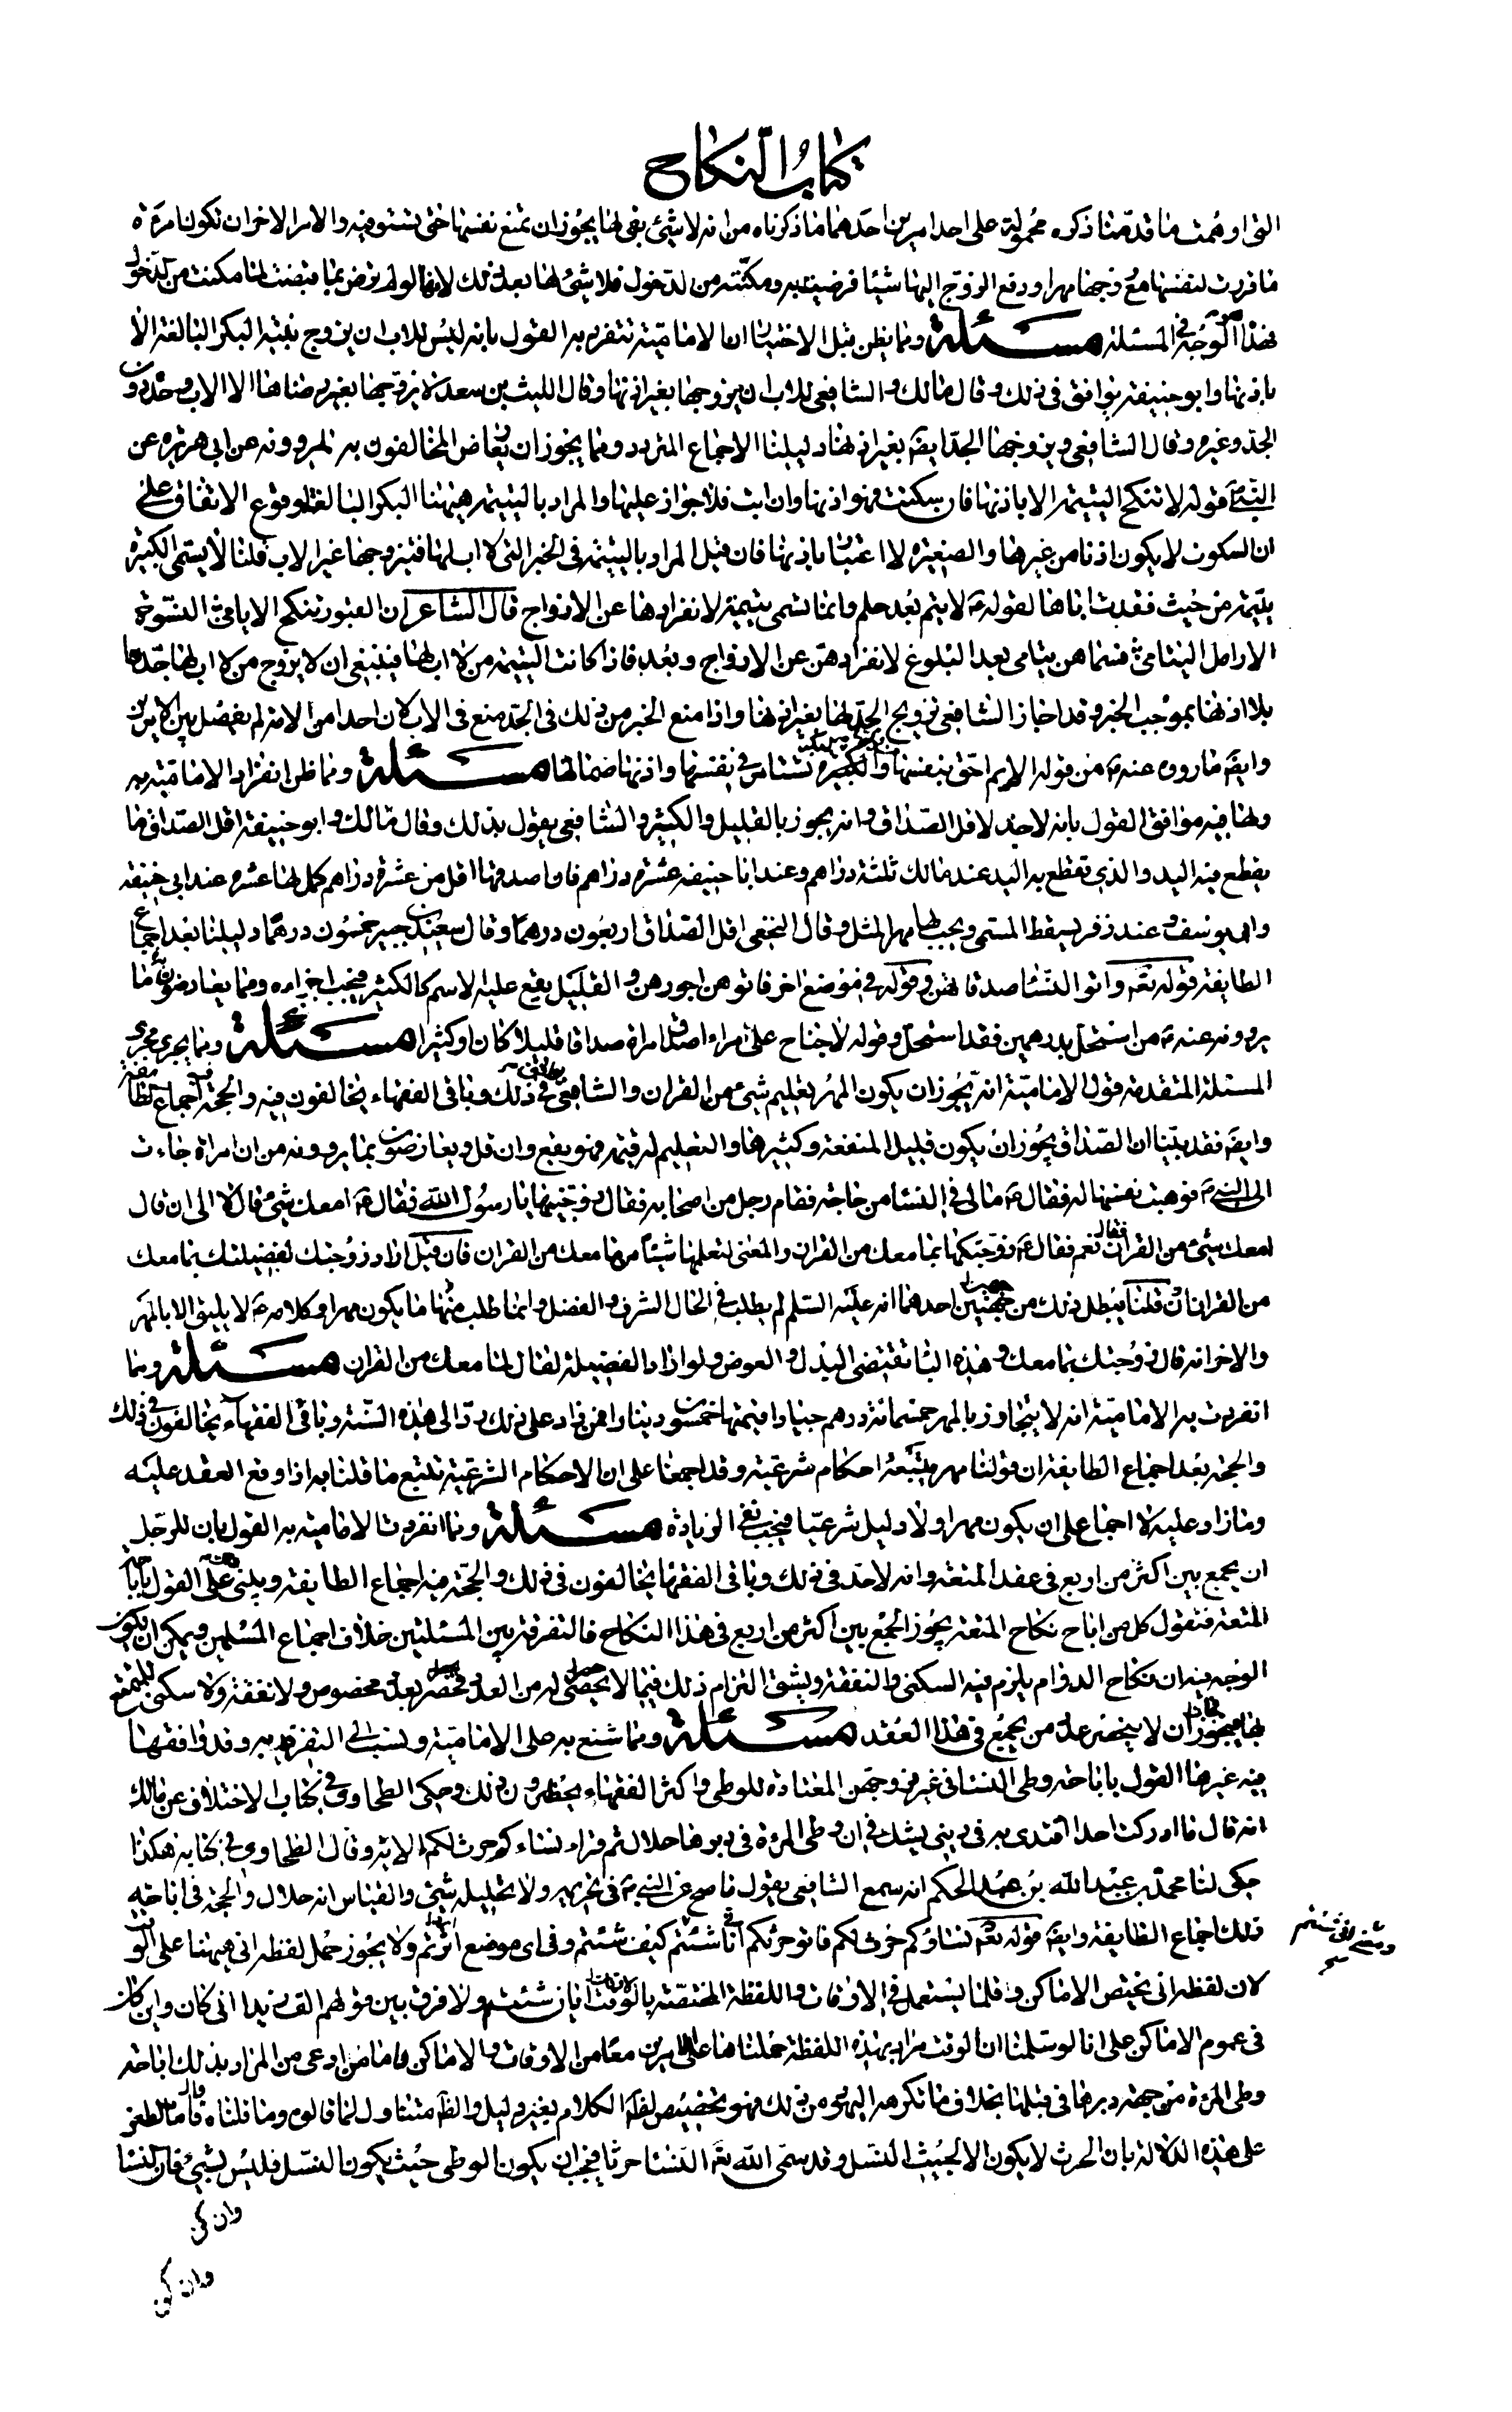 كتاب النكاح
التى اوهمت ما قدمنا ذكره محمولة على احد امرين احدهما ما ذكرناه من انه لا شئ بقى لها يجوز ان تمنع نفسها حتى تستوفيه والامر الاخر ان تكون امرءة
ما قررت لنفسها مع زوجها مهرا ودفع الزوج اليها شيئا فرضيت به ومكنته من الدخول فلا شئ لها بعد ذلك لانها لو لم ترض بما قبضت لما مكنت من الدخول
فهذا الوجه فى المسئلة مسئلة ومما يظن قبل الاختبار ان الامامية تتفرد به القول بانه ليس للاب ان يزوج بنته البكر البالغة الا
باذنها وابو حنيفة يوافق فى ذلك وقال مالك والشافعى للاب ان يزوجها بغير اذنها وقال الليث بن سعد لا يزوجها بغير رضاها الا الاب وحده دون
الجد وغيره وقال الشافعى ويزوجها الجد ايضا بغير اذنها دليلنا الاجماع المتردد ومما يجوز ان يعارض المخالفون به لما يروونه عن ابى هريرة عن
النبى ص قوله لا تنكح اليتيمة الا باذنها فان سكتت فهو اذنها وان ابت فلا جواز عليها والمراد باليتيمة هيهنا البكر البالغة لوقوع الاتفاق على
ان السكوت لا يكون اذنا من غيرها والصغيرة لا اعتبار باذنها فان قيل المراد باليتيمة فى الخبر التى لا اب لها فيتزوجها غير الاب قلنا لا يسمى الكبيرة
يتيمة من حيث فقدت اباها لقوله ع لا يتم بعد حلم وانما تسمى يتيمة لانفرادها عن الازواج قال الشاعر ان القبور تنكح الايامى النسوة
الارامل اليتامى فسماهن يتامى بعد البلوغ لانفرادهن عن الازواج وبعد فاذا كانت اليتيمة من لا اب لها فينبغى ان لا يزوج من لا اب لها جدها
بلا اذنها بموجب الخبر وقد اجاز الشافعى تزويج الجد لها بغير اذنها واذا منع الخبر من ذلك فى الجد منع فى الاب لان احدا من الامة لم يفصل بين الامرين
وايضا ما رووه عنه ع من قوله الايم احق بنفسها من وليها والبكر تستامر فى نفسها واذنها صماتها مسئلة ومما ظن انفراد الامامية به
ولها فيه موافق القول بانه لا حد لاقل الصداق وانه يجوز بالقليل والكثير والشافعى يقول بذلك وقال مالك وابو حنيفة اقل الصداق ما
يقطع فيه اليد والذى تقطع به اليد عند مالك ثلثة دراهم وعند ابا حنيفه عشرة دراهم فان اصدقها اقل من عشرة دراهم كمل لها عشرة عند ابى حنيفه
وابى يوسف وعند زفر يسقط المسمى ويجب لها مهر المثل وقال النخعى اقل الصداق اربعون درهما وقال سعيد بن جبير خمسون درهما دليلنا بعد اجماع
الطايفة قوله تعم واتوا النساء صدقاتهن وقوله فى موضع اخر فاتوهن اجورهن والقليل يقع عليه الاسم كالكثير فيجب اجزاءه ومما يعارضون به ما
يروونه عنه ع من استحل بدرهمين فقد استحل وقوله لا جناح على امراء اصدق امراة صداقا قليلا كان او كثيرا مسئلة ومما يجرى مجرى
المسئلة المتقدمة قول الامامية انه يجوز ان يكون المهر تعليم شئ من القران والشافعى يوافق فى ذلك وباقى الفقهاء يخالفون فيه والحجة اجماع الطايفة
وايضا فقد بينا ان الصداق يجوز ان يكون قليل المنفعة وكثيرها والتعليم له قيمة فهو يقع وان قل ويعارضون بما يروونه من ان امراة جاءت
الى النبى ص فوهبت نفسها له فقال ع مالى فى النساء من حاجة فقام رجل من اصحابه فقال زوجنيها يا رسول الله فقال ع امعك شئ قال لا الى ان قال
امعك شئ من القران فقال نعم فقال ع زوجتكها بما معك من القران والمعنى لتعلمها شيئا مما معك من القران فان قيل اراد زوجتك لفضيلتك بما معك
من القران قلنا يبطل ذلك من جهتين احدهما انه عليه السلم لم يطلب فى الحال الشرف والفضل وانما طلب منها ما يكون مهرا وكلامه ع لا يليق الا بالمهر
والاخر انه قال زوجتك بما معك وهذه الباء تقتضى البدل والعوض ولو اراد الفضيلة لقال لما معك من القران مسئلة ومما
انفردت به الامامية انه لا يتجاوز بالمهر خمسمائة درهم جيادا قيمتها خمسون دينارا فمن زاد على ذلك رد الى هذه السنة وباقى الفقهاء يخالفون فى ذلك
والحجة بعد اجماع الطايفة ان قولنا مهر يتبعه احكام شرعية وقد اجمعنا على ان الاحكام الشرعية تتبع ما قلنا به اذا وقع العقد عليه
وما زاد عليه لا اجماع على ان يكون مهرا ولا دليل شرعيا فيجب نفى الزيادة مسئلة ومما انفردت الامامية به القول بان للرجل
ان يجمع بين اكثر من اربع فى عقد المتعة وانه لا حد فى ذلك وباقى الفقهاء يخالفون فى ذلك والحجة فيه اجماع الطايفة ويبتنى على القول باباحة
المتعة فنقول كل من اباح نكاح المتعة يجوز الجمع بين اكثر من اربع فى هذا النكاح فالتفرقة بين المسئلتين خلاف اجماع المسلمين ويمكن ان يكون
الوجه فيه ان نكاح الدوام يلزم فيه السكنى والنفقة ويشق التزام ذلك فيما لا يحصى له من العدد فحصر بعدد مخصوص ولا نفقة ولا سكنى للمتمتع
بها فجاز ان لا ينحصر عدد من يجمع فى هذا العقد مسئلة ومما شنع به على الامامية ونسبت الى التفرد به وقد وافقها
فيه غيرها القول باباحة وطى النساء فى غير فروجهن المعتادة للوطى واكثر الفقهاء يحظرون ذلك وحكى الطحاوى فى كتاب الاختلاف عن مالك
انه قال ما ادركت احدا اقتدى به فى دينى يشك فى ان وطى المرءة فى دبرها حلال ثم قراء نساءكم حرث لكم الاية وقال الطحاوى فى كتابه هكذا
حكى لنا محمد بن عبد الله بن عبد الحكم انه سمع الشافعى يقول ما صح عن النبى ص فى تحريمه ولا تحليله شئ والقياس انه حلال والحجة فى اباحته
ذلك اجماع الطايفة وايضا قوله تعم نساؤكم حرث لكم فاتوا حرثكم انى شئتم كيف شئتم وفى اى موضع اثرتم ولا يجوز حمل لفظه انى هيهنا على الوقت
لان لفظه انى يختص الاماكن وقلما يستعمل فى الاوقات واللفظة المختصة بالوقت ايان شئتم ولا فرق بين قولهم الق زيدا انى كان واين كان
فى عموم الاماكن على انا لو سلمنا ان الوقت مراد بهذه اللفظة حملناها على الامرين معا من الاوقات والاماكن فاما من ادعى من المراد بذلك اباحة
وطى المرءة من جهة دبرها فى قبلها بخلاف ما تكرهه اليهود من ذلك فهو تخصيص لظاهر الكلام بغير دليل والظاهر متناول لما قالوه وما قلناه فاما الطعن
على هذه الدلالة بان الحرث لا يكون الا بحيث النسل وقد سمى الله تعم النساء حرثا فيجب ان يكون الوطى حيث يكون النسل فليس بشئ فان النساء
وان كن
وان كن